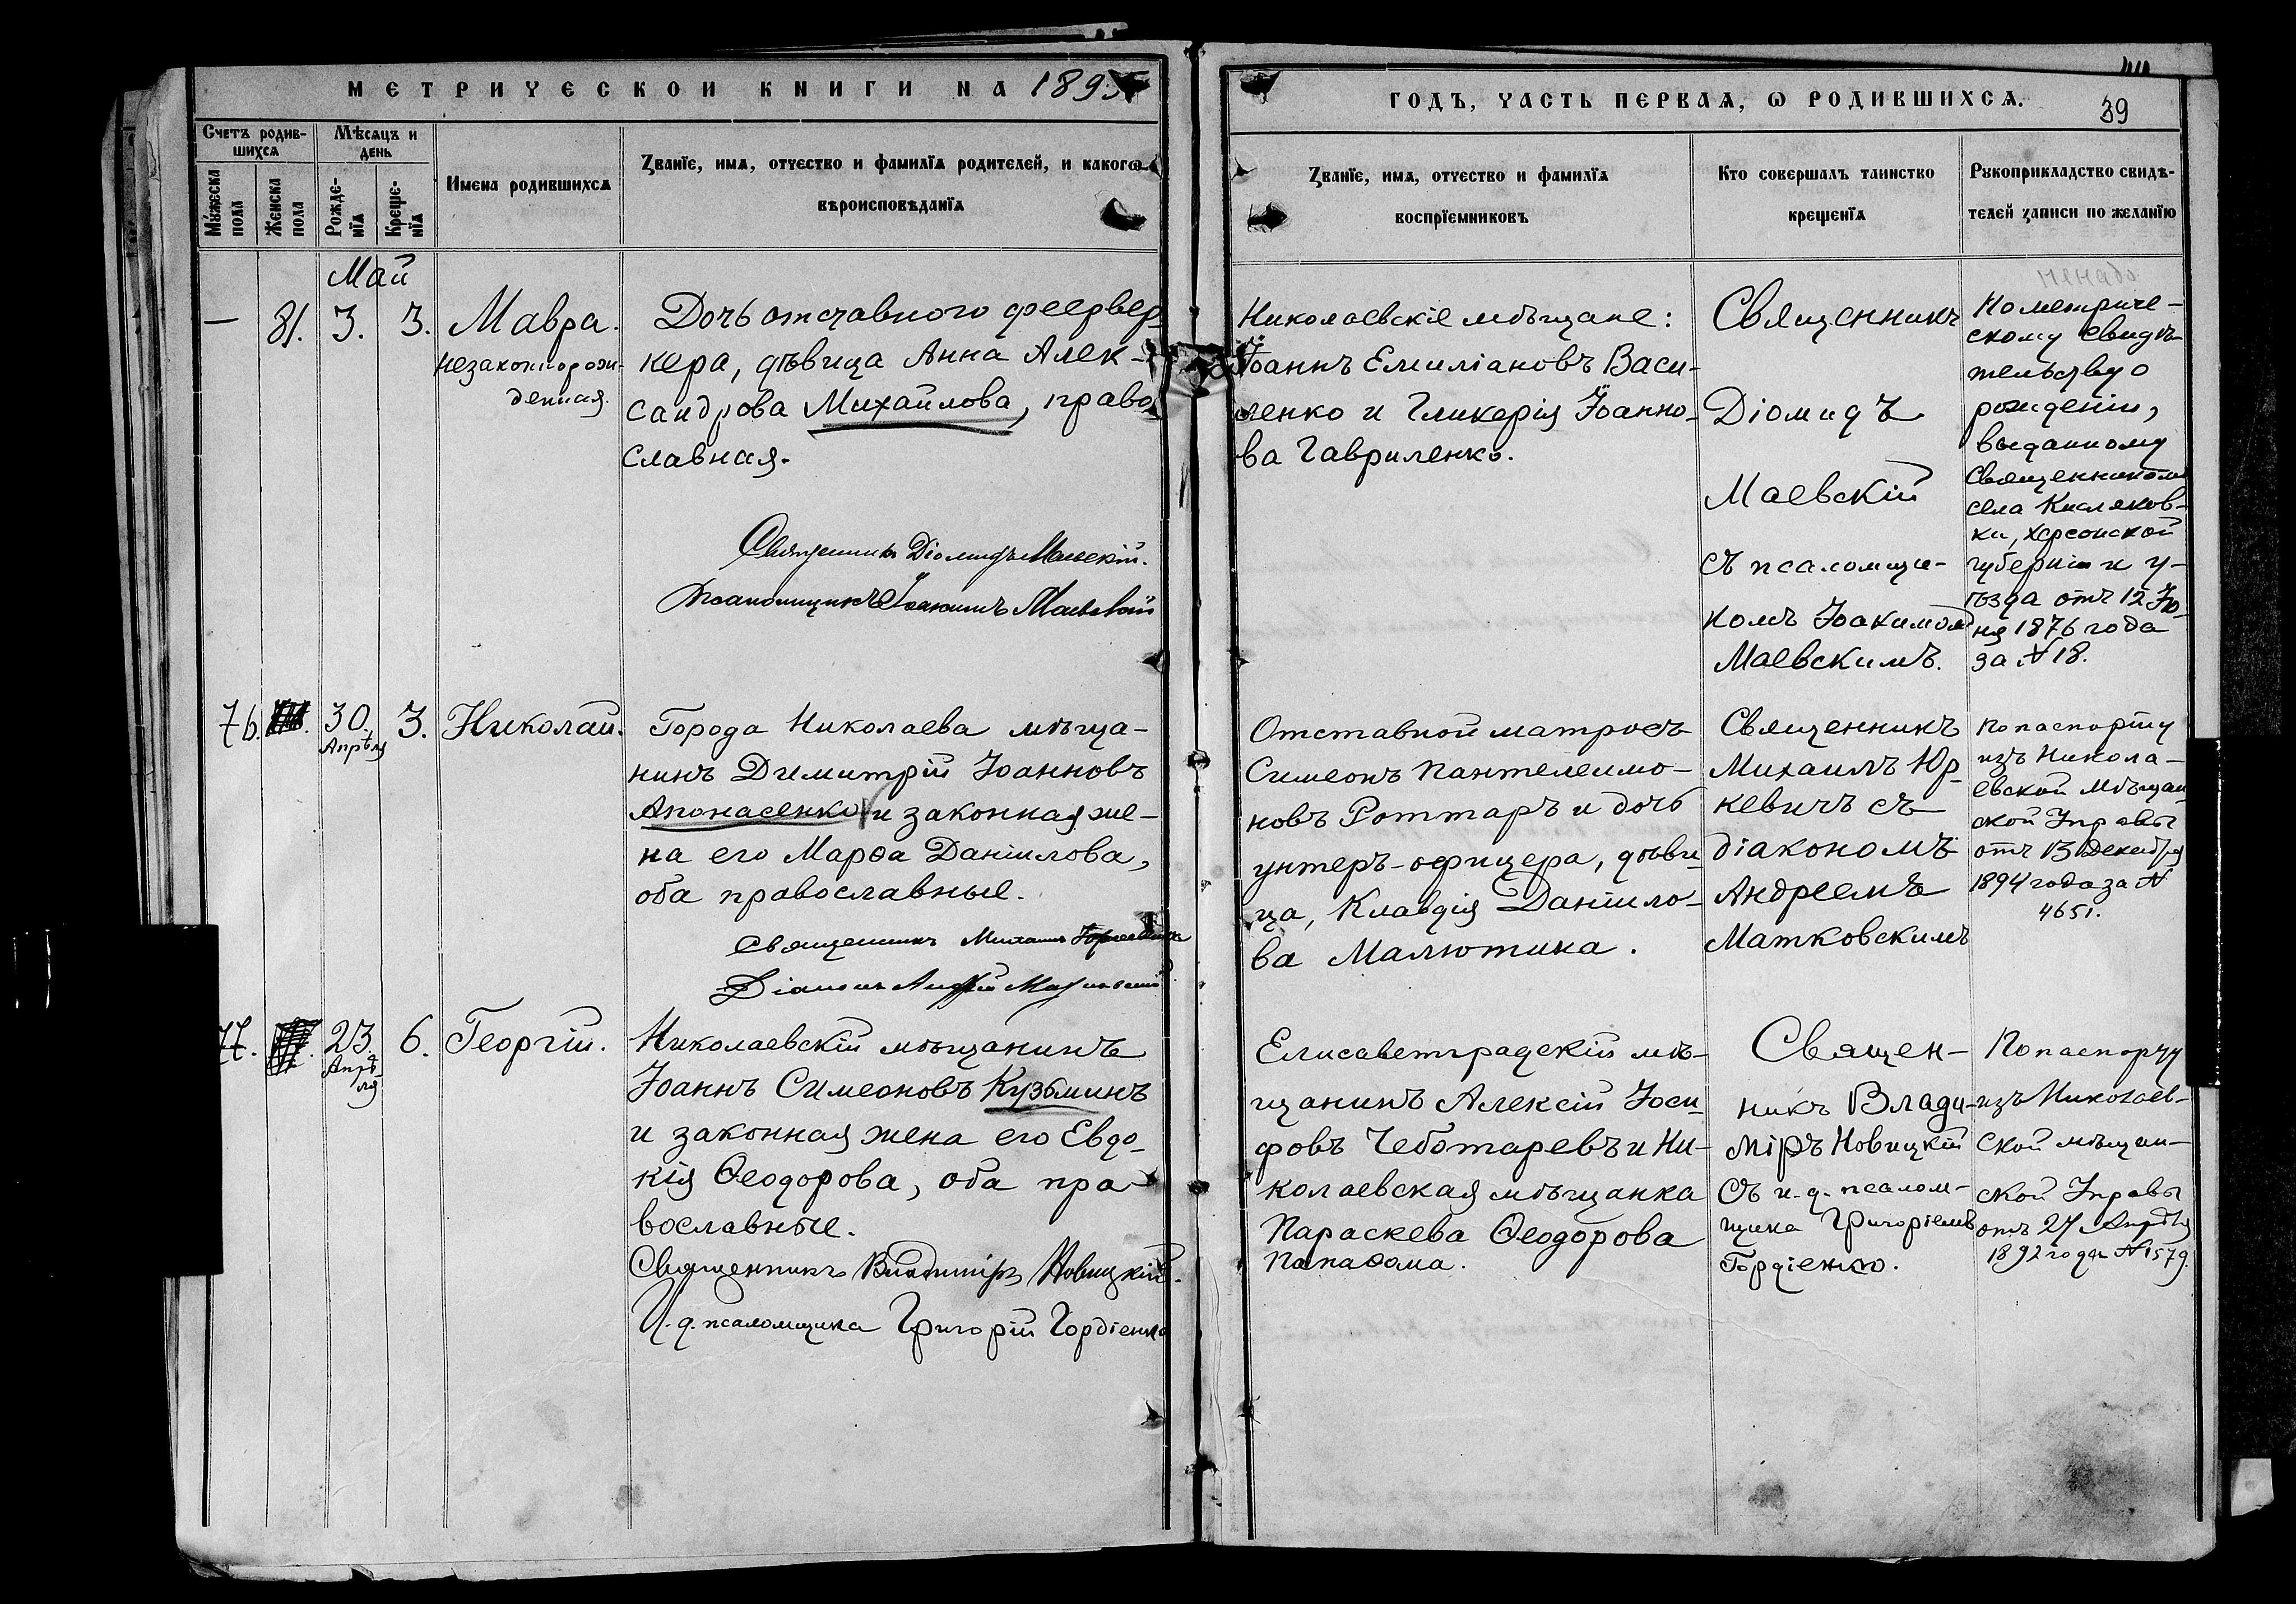 МЕТРИЧЕСКОЙ КНИГИ НА 1895
ГОДЪ, ЧАСТЬ ПЕРВАѦ, Ѡ РОДИВШИХСѦ.
39
Счетъ родив-
шихсѧ
Мѣсѧцъ и
день
Мꙋжеска
пола
Женска
пола
Рожде-
нїѧ
Креще-
нїѧ
Имена родившихсѧ
Званїе, имѧ, отчество и фамилїѧ родителей, и какогѡ
вѣроисповѣданїѧ
Званїе, имѧ, отчество и фамилїѧ
воспрїемниковъ
Кто совершалъ таинство
крещенїѧ
Рꙋкоприкладство свидѣ-
телей записи по желанїю
Май
— 81. 3. 3. Мавра.
незаконнорож-
денная.
Дочь отставного феервер-
кера, дѣвица Анна Алек-
сандрова Михайлова, право
славная.
Священникъ Діомидъ Маевскій.
Псаломщикъ Іоакимъ Маевскій
Николаевскіе мѣщане:
Іоаннъ Емиліановъ Васи-
ленко и Гликерія Іоанно-
ва Гавриленко.
Священникъ
Діомидъ
Маевскій
съ псаломщи-
комъ Іоакимомъ
Маевскимъ.
ненадо
По метриче-
скому свидѣ-
тельству о
рожденіи,
выданному
Священникомъ
села Кисляков-
ки, Херсонской
губерніи и у-
ѣзда отъ 12 Ію-
ня 1876 года
за N 18.
76. 30. Апрѣля 3. Николай.
Города Николаева мѣща-
нинъ Димитрій Іоанновъ
Апонасенко и законная же-
на его Марѳа Даніилова,
оба православные.
Священникъ Михаилъ Юркевичъ
Діаконъ Андрей Матковскій
Отставной матросъ
Симеонъ Пантелеимо-
новъ Роттаръ и дочь
унтеръ-офицера, дѣви-
ца, Клавдія Даніило-
ва Малютина.
Священникъ
Михаилъ Юр-
кевичъ съ
діакономъ
Андреемъ
Матковскимъ
По паспорту
изъ Никола-
евской Мѣщан-
ской Управы
отъ 13 Декабря
1894 года за N
4651.
77. 23. Апрѣ-
ля 6. Георгій.
Николаевскій мѣщанинъ
Іоаннъ Симеоновъ Кузьминъ
и законная жена его Евдо-
кія Ѳеодорова, оба пра-
вославные.
Священникъ Владиміръ Новицкій.
И. д. псаломщика Григорій Гордіенко
Елисаветградскій мѣ-
щанинъ Алексій Іоси-
фовъ Чеботаревъ и Ни-
колаевская мѣщанка
Параскева Ѳеодорова
Свящ­ен-
никъ Влади-
міръ Новицкій
съ и. д. псалом-
щика Григоріемъ
Гордіенко.
По паспорту
изъ Николаев-
ской мѣщан-
ской Управы
отъ 27 Апрѣля
1892 года N 1579.